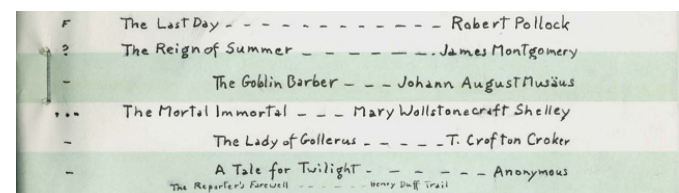 F The Last Day - - - - - - - - - - - - - Robert Pollock
? The Reign of Summer - - - - - - - . James Montgomery
- The Goblin Barber - - - Johann August Musäus
... The Mortal Immortal - - - Mary Wollstonecraft Shelley
- The Lady of Gollerus - - - - - T. Crofton Croker
- A Tale for Twilight - - - - - - Anonymous
The Reporter's Farewell - - - - - - Henry Duff Trail